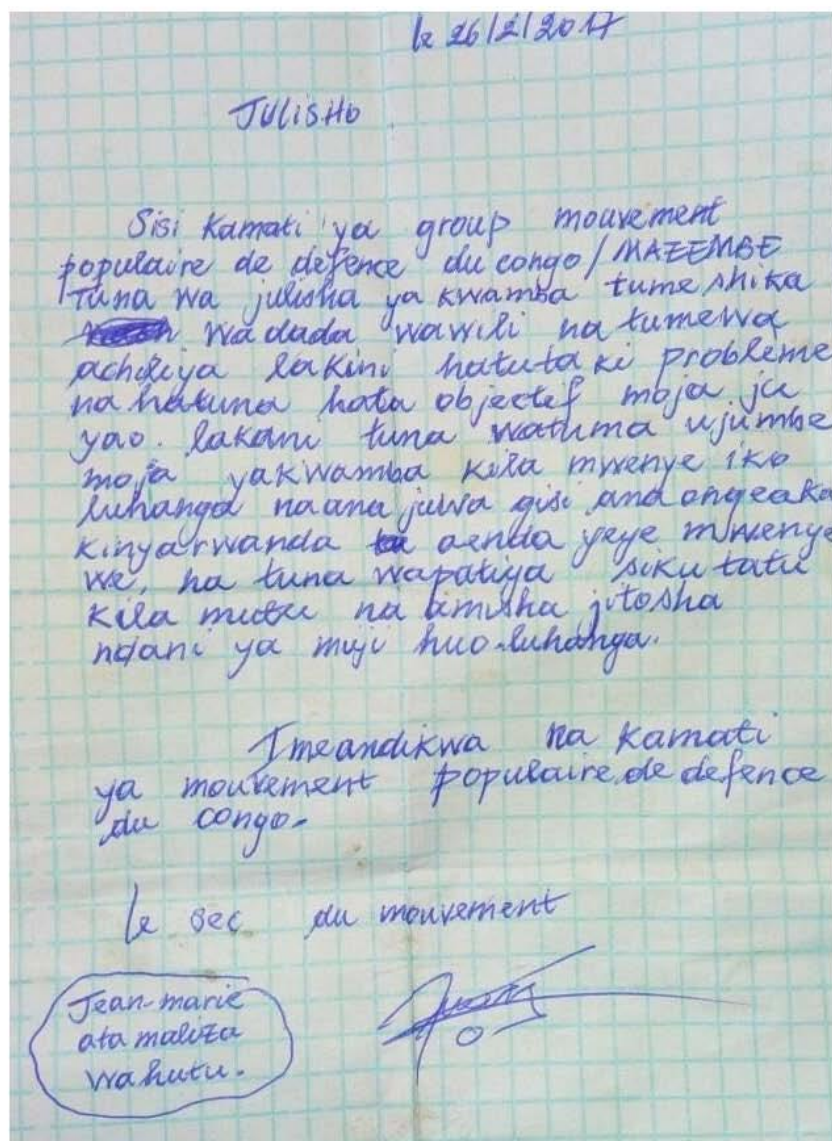 le 26/2/2017
JULISHO
Sisi Kamati ya group mouvement
populaire de defence du congo/MAZEMBE
Tuna wa julisha ya kwamba tume shika
wadada wawili na tumewa
achiliya lakini hatutaki probleme
na hatuna hata objectif moja ju
yao. lakani tuna watuma ujumbe
moja yakwamba kila mwenye iko
luhanga naana juwa gisi ana ongeaka
kinyarwanda aenda yeye mwenye
we, na tuna wapatiya siku tatu
kila mutu na amisha jitosha
ndani ya muji huo-luhanga.
Imeandikwa na kamati
ya mouvement populaire de defence
du congo.
le sec du mouvement
Jean-marie
ata maliza
wahutu.